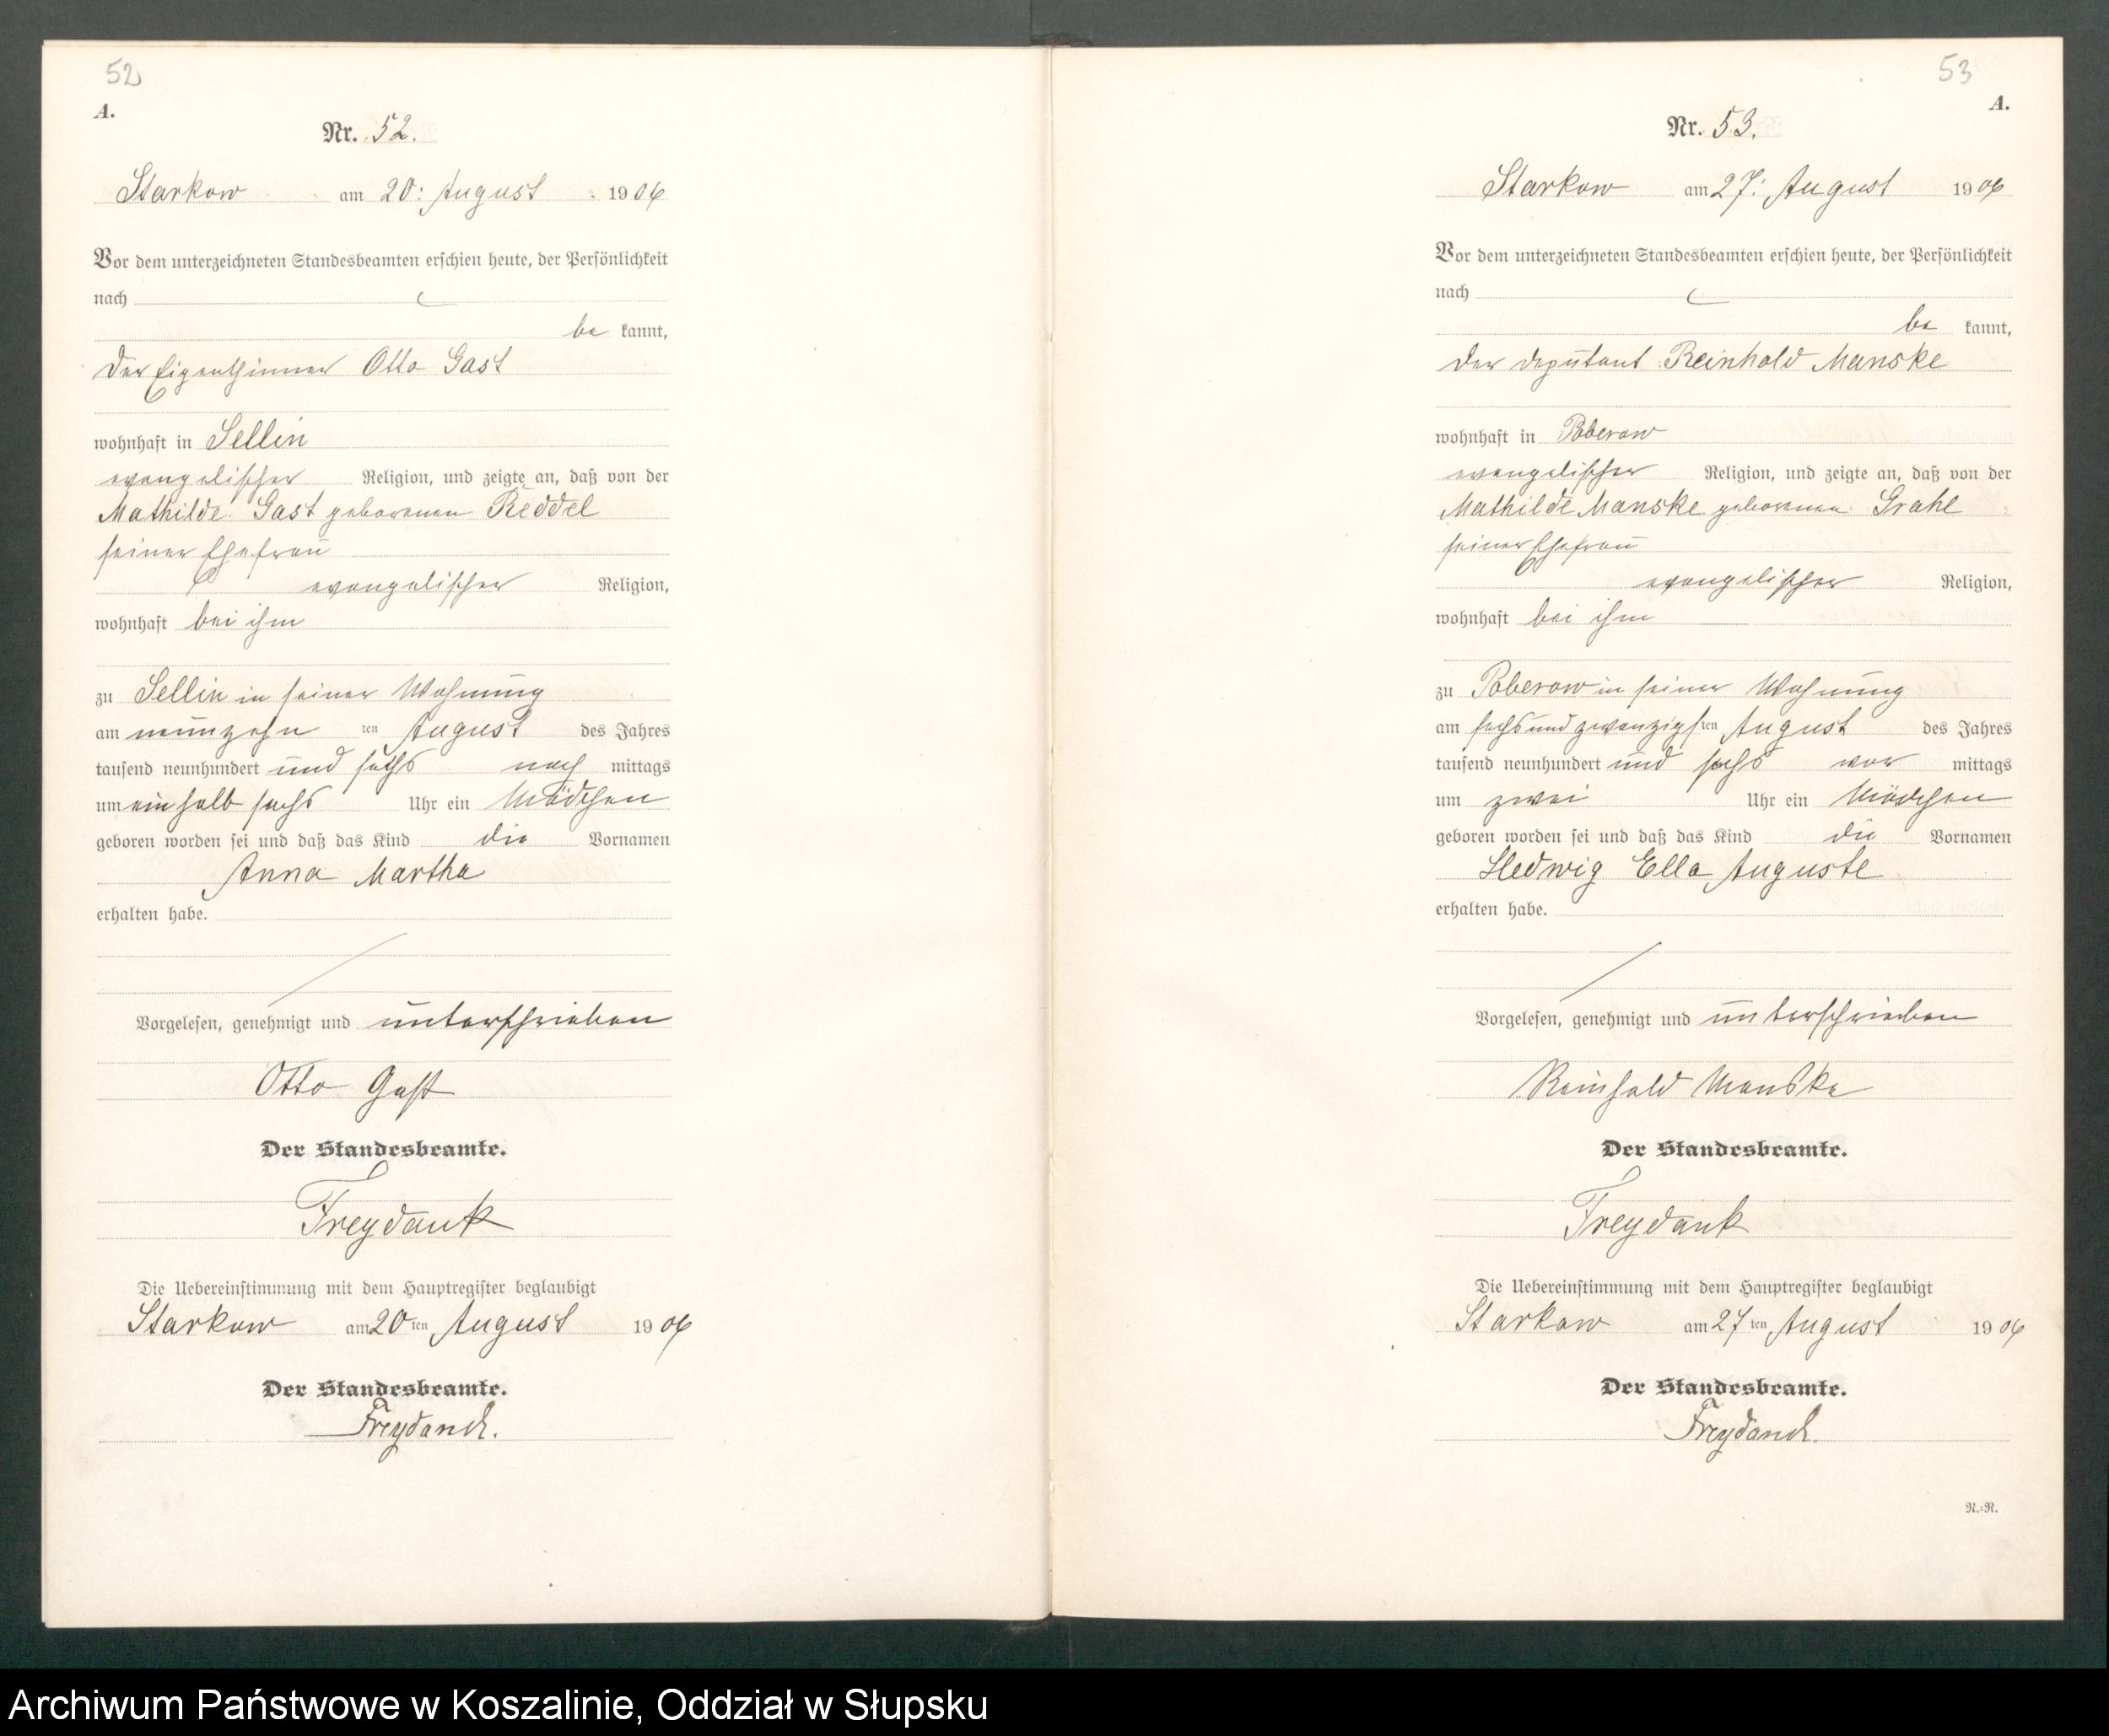 52
A.
Nr. 52.
Starkow am 20: August 1906
Vor dem unterzeichneten Standesbeamten erschien heute, der Persönlichkeit
nach
be kannt,
der Eigenthümer Otto Gast
wohnhaft in Sellin
evangelischer Religion, und zeigte an, daß von der
Mathilde Gast geborenen Reddel
seiner Ehefrau
evangelischer Religion,
wohnhaft bei ihm
zu Sellin in seiner Wohnung
am neunzehn ten August des Jahres
tausend neunhundert und sechs nach mittags
um ein halb sechs Uhr ein Mädchen
geboren worden sei und daß das Kind die Vornamen
Anna Martha
erhalten habe.
Vorgelesen, genehmigt und unterschrieben
Otto Gast
Der Standesbeamte.
Freydank
Die Uebereinstimmung mit dem Hauptregister beglaubigt
Starkow am 20 ten August 1906
Der Standesbeamte.
Freydank.
53
A.
Nr. 53.
Starkow am 27: August 1906
Vor dem unterzeichneten Standesbeamten erschien heute, der Persönlichkeit
nach
be kannt,
der Deputant Reinhold Manske
wohnhaft in Poberow
evangelischer Religion, und zeigte an, daß von der
Mathilde Manske geborenen Grahl
seiner Ehefrau
evangelischer Religion,
wohnhaft bei ihm
zu Poberow in seiner Wohnung
am sechsundzwanzigsten August des Jahres
tausend neunhundert und sechs vor mittags
um zwei Uhr ein Mädchen
geboren worden sei und daß das Kind die Vornamen
Hedwig Ella Auguste
erhalten habe.
Vorgelesen, genehmigt und unterschrieben
Reinhold Manske
Der Standesbeamte.
Freydank
Die Uebereinstimmung mit dem Hauptregister beglaubigt
Starkow am 27 ten August 1906
Der Standesbeamte.
Freydank.
R.:R.
Archiwum Państwowe w Koszalinie, Oddział w Słupsku